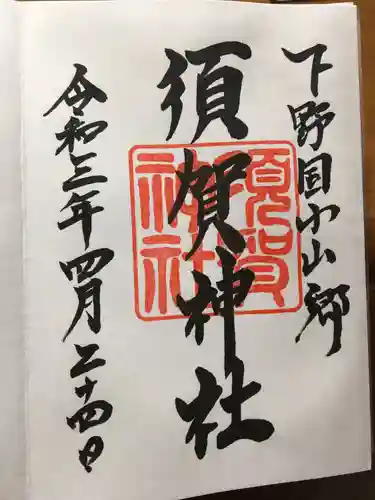 下野国小山郷
須賀神社
須賀神社
令和三年四月二十四日